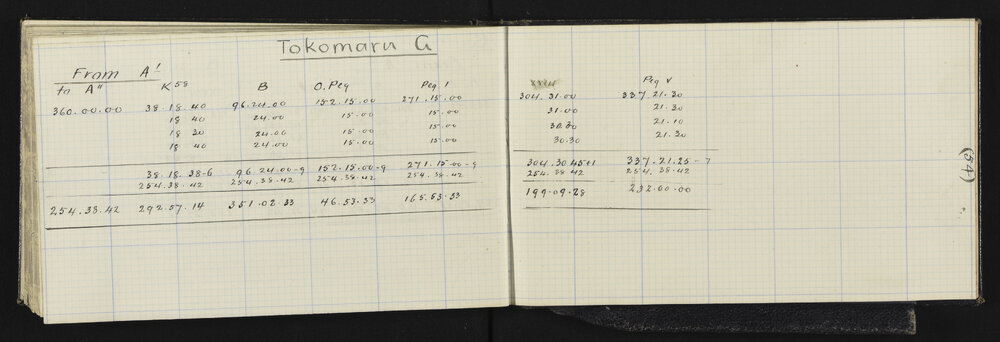 Tokomaru G
From A'
to A" K58 B O. Peg Peg 1 Peg V
360.00.00 38.18.40 96.24.00 152.15.00 271.15.00 304.31.00 337.21.30
18 40 24.00 15.00 15.00 31.00 21.30
18 30 24.00 15.00 15.00 30.30 21.10
18 40 24.00 15.00 15.00 30.30 21.30
38.18.38-6 96.24.00-9 152.15.00-9 271.15.00-9 304.30.45+1 337.21.25-7
254.38.42 254.38.42 254.38.42 254.38.42 254.38.42 254.38.42
254.38.42 292.57.14 351.02.33 46.53.33 165.53.33 199.09.28 232.00.00
(54)